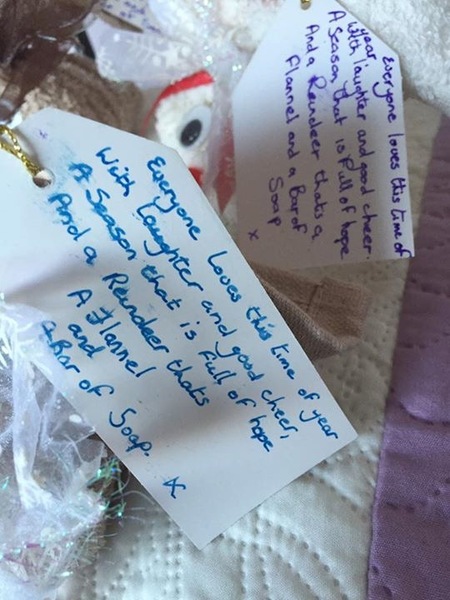 Everyone loves this time of year
With laughter and good cheer,
A Season that is full of hope
And a Reindeer thats
A flannel
and
A Bar of Soap.
x
Everyone loves this time of
year
With laughter and good cheer.
A Season that is full of hope
And a Reindeer thats a
flannel and a Bar of
Soap
x